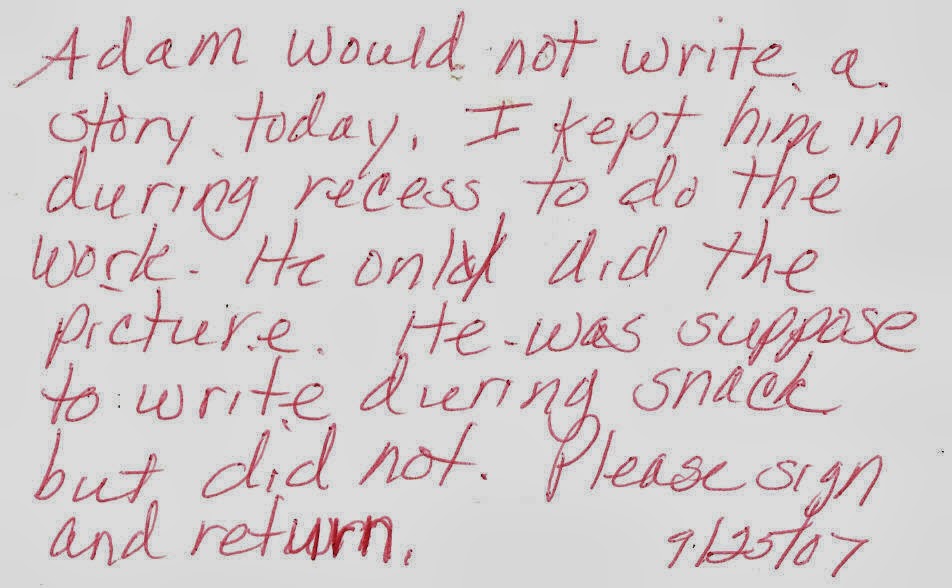 Adam would not write a
story today. I kept him in
during recess to do the
work. He only did the
picture. He was suppose
to write during snack
but did not. Please sign
and return. 9/25/07